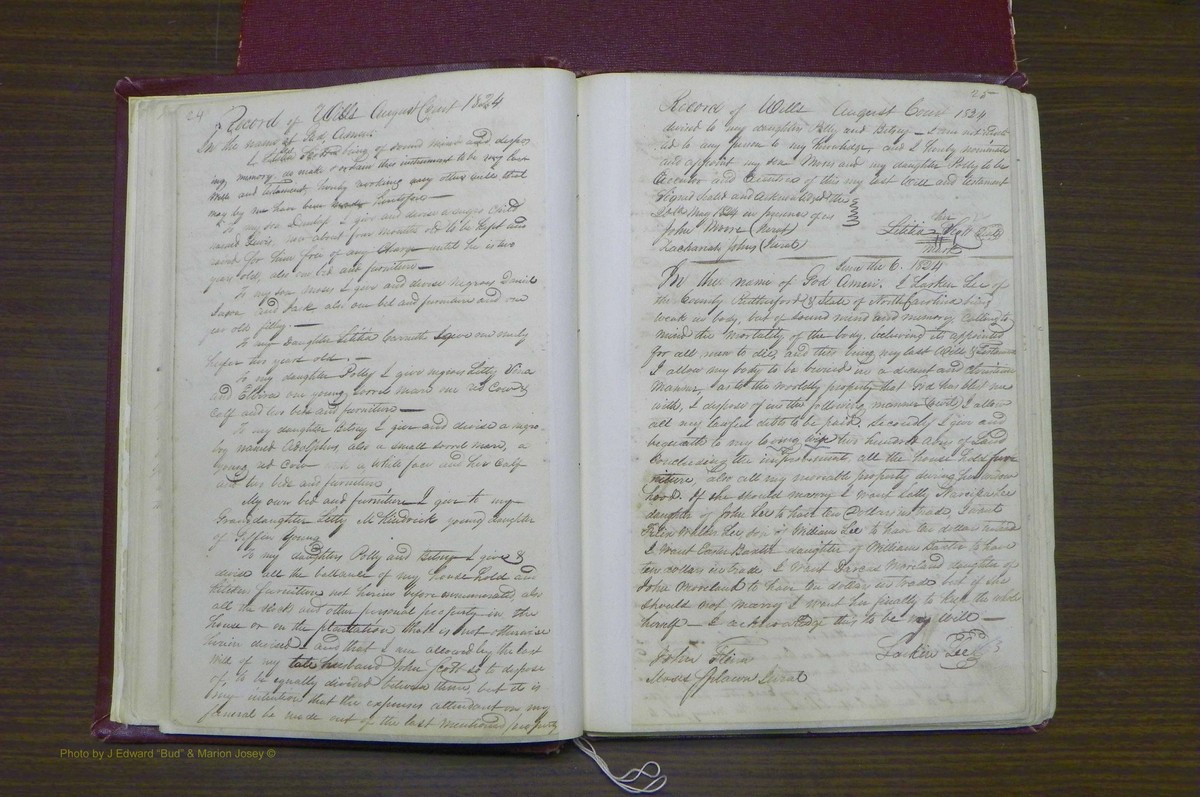 24
Record of Wills August Court 1824
In the name of God Amen
I Letitia Scott being of sound mind and dispos-
ing memory do make & ordain this instrument to be my last
Will and testament hereby revoking any other will that
may by me have been made heretofore
To my son Dunlap I give and devise a negro Child
named Lewis, now about four months old to be kept and
raised for him free of any Charge until he is two
years old, also one bed and furniture
To my son Moses I give and devise negroes Daniel
and Jack also one bed and furniture and one
year old filly
To my Daughter Letitia Carruth I give one
heifer two year old.
To my daughter Polly I give negroes Letty
and Elvira one young sorrel mare one red Cow &
Calf and two beds and furniture
To my daughter Betsey I give and divise a negro
boy named Adolphus, also a small sorrel mare, a
young red Cow with a White face and her Calf
and two beds and furniture
My own bed and furniture I give to my
Granddaughter Letty McKindrick young daughter
of Young
To my daughters Polly and Betsey I give &
devise all the ballance of my house hold and
kitchen furniture not herein before enumerated also
all the stock and other personal property in the
house or on the plantation that is not otherwise
herein devised and that I am allowed by the last
Will of my late husband John Scott so to dispose
of, to be equally divided between them, but it is
my intention that the expenses attendant on my
funeral be made out of the last mentioned property
25
Record of Wills August Court 1824
devised to my daughters Polly and Betsey I am not indebt-
ed to any person to my Knowledge, and I hereby nominate
and appoint my son Moses and my daughter Polly to be
Executor and Executrix of this my last Will and testament
Signed Sealed and Acknowledged this
May 1824 in presence of us
her
John Moore (Jurat)
Letitia Scott (Seal)
Zachariah Johns (Jurat)
mark
June the 6. 1824
In the name of God Amen. I Larkin Lee of
the County Rutherford & State of North Carolina being
weak in body, but of sound mind and memory Calling to
mind the mortality of the body, believing it appointed
for all men to die, and this being my last Will & Testament
I allow my body to be buried in a decent and christian
Manner, as to the worldly property that God has blest me
with, I dispose of in the following manner (towit) I allow
all my lawful debts to be paid, Secondly I give and
bequeath to my loving wife two hundred Acres of Land
including the improvement, all the house hold furn
niture, also all my moveable property during her widow
hood. If she should marry I want Letty
daughter of John Lee to have ten Dollars in trade I want
Walker Lee son of William Lee to have ten dollars in trade
I Want Baxter daughter of William Baxter to have
ten dollars in trade I Want Dorcas Moreland daughter of
John Moreland to have ten dollars in trade but if she
should not marry I want her finally to keep the whole
herself I acknowledge this to be my Will
John Larkin Lee
Moses Jurat
Photo by J Edward "Bud" & Marion Josey ©